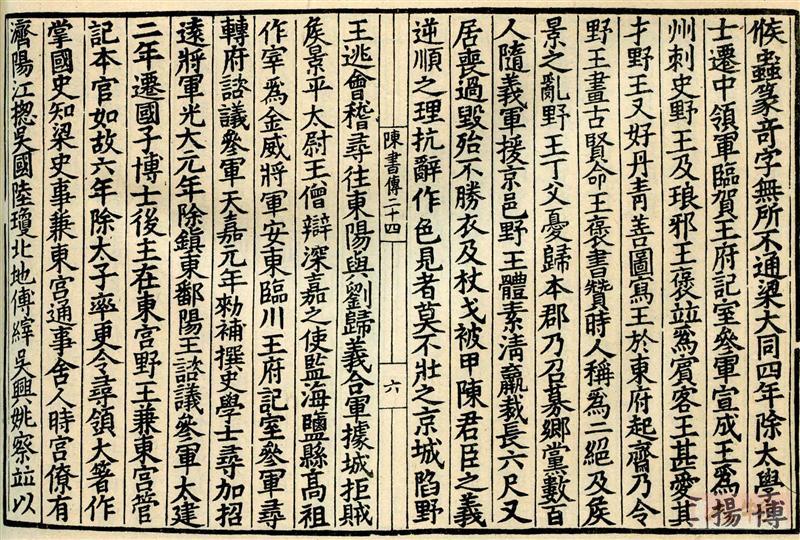 候蟲篆奇字無所不通梁大同四年除大學博
士遷中領軍臨賀王府記室參軍宣成王為揚
州刺史野王及琅邪王褒竝為賓客王甚愛其
才野王又好丹青善圖寫王於東府起齋乃令
野王畫古賢命王褒書贊時人稱為二絕及侯
景之亂野王丁父憂歸本郡乃召募鄉黨數百
人隨義軍援京邑野王體素清羸裁長六尺又
居喪過毀殆不勝衣及杖戈被甲陳君臣之義
逆順之理抗辭作色見者莫不壯之京城陷野
陳書傳二十四
六
王逃會稽尋往東陽與劉歸義合軍據城拒賊
侯景平太尉王僧辯深嘉之使監海鹽縣高祖
作宰為金威將軍安東臨川王府記室參軍尋
轉府諮議參軍天嘉元年勑補撰史學士尋加招
遠將軍光大元年除鎮東鄱陽王諮議參軍太建
二年遷國子博士後主在東宮野王兼東宮管
記本官如故六年除太子率更令尋領大著作
掌國史知梁史事兼東宮通事舍人時宮僚有
濟陽江揔吳國陸瓊北地傅縡吳興姚察竝以